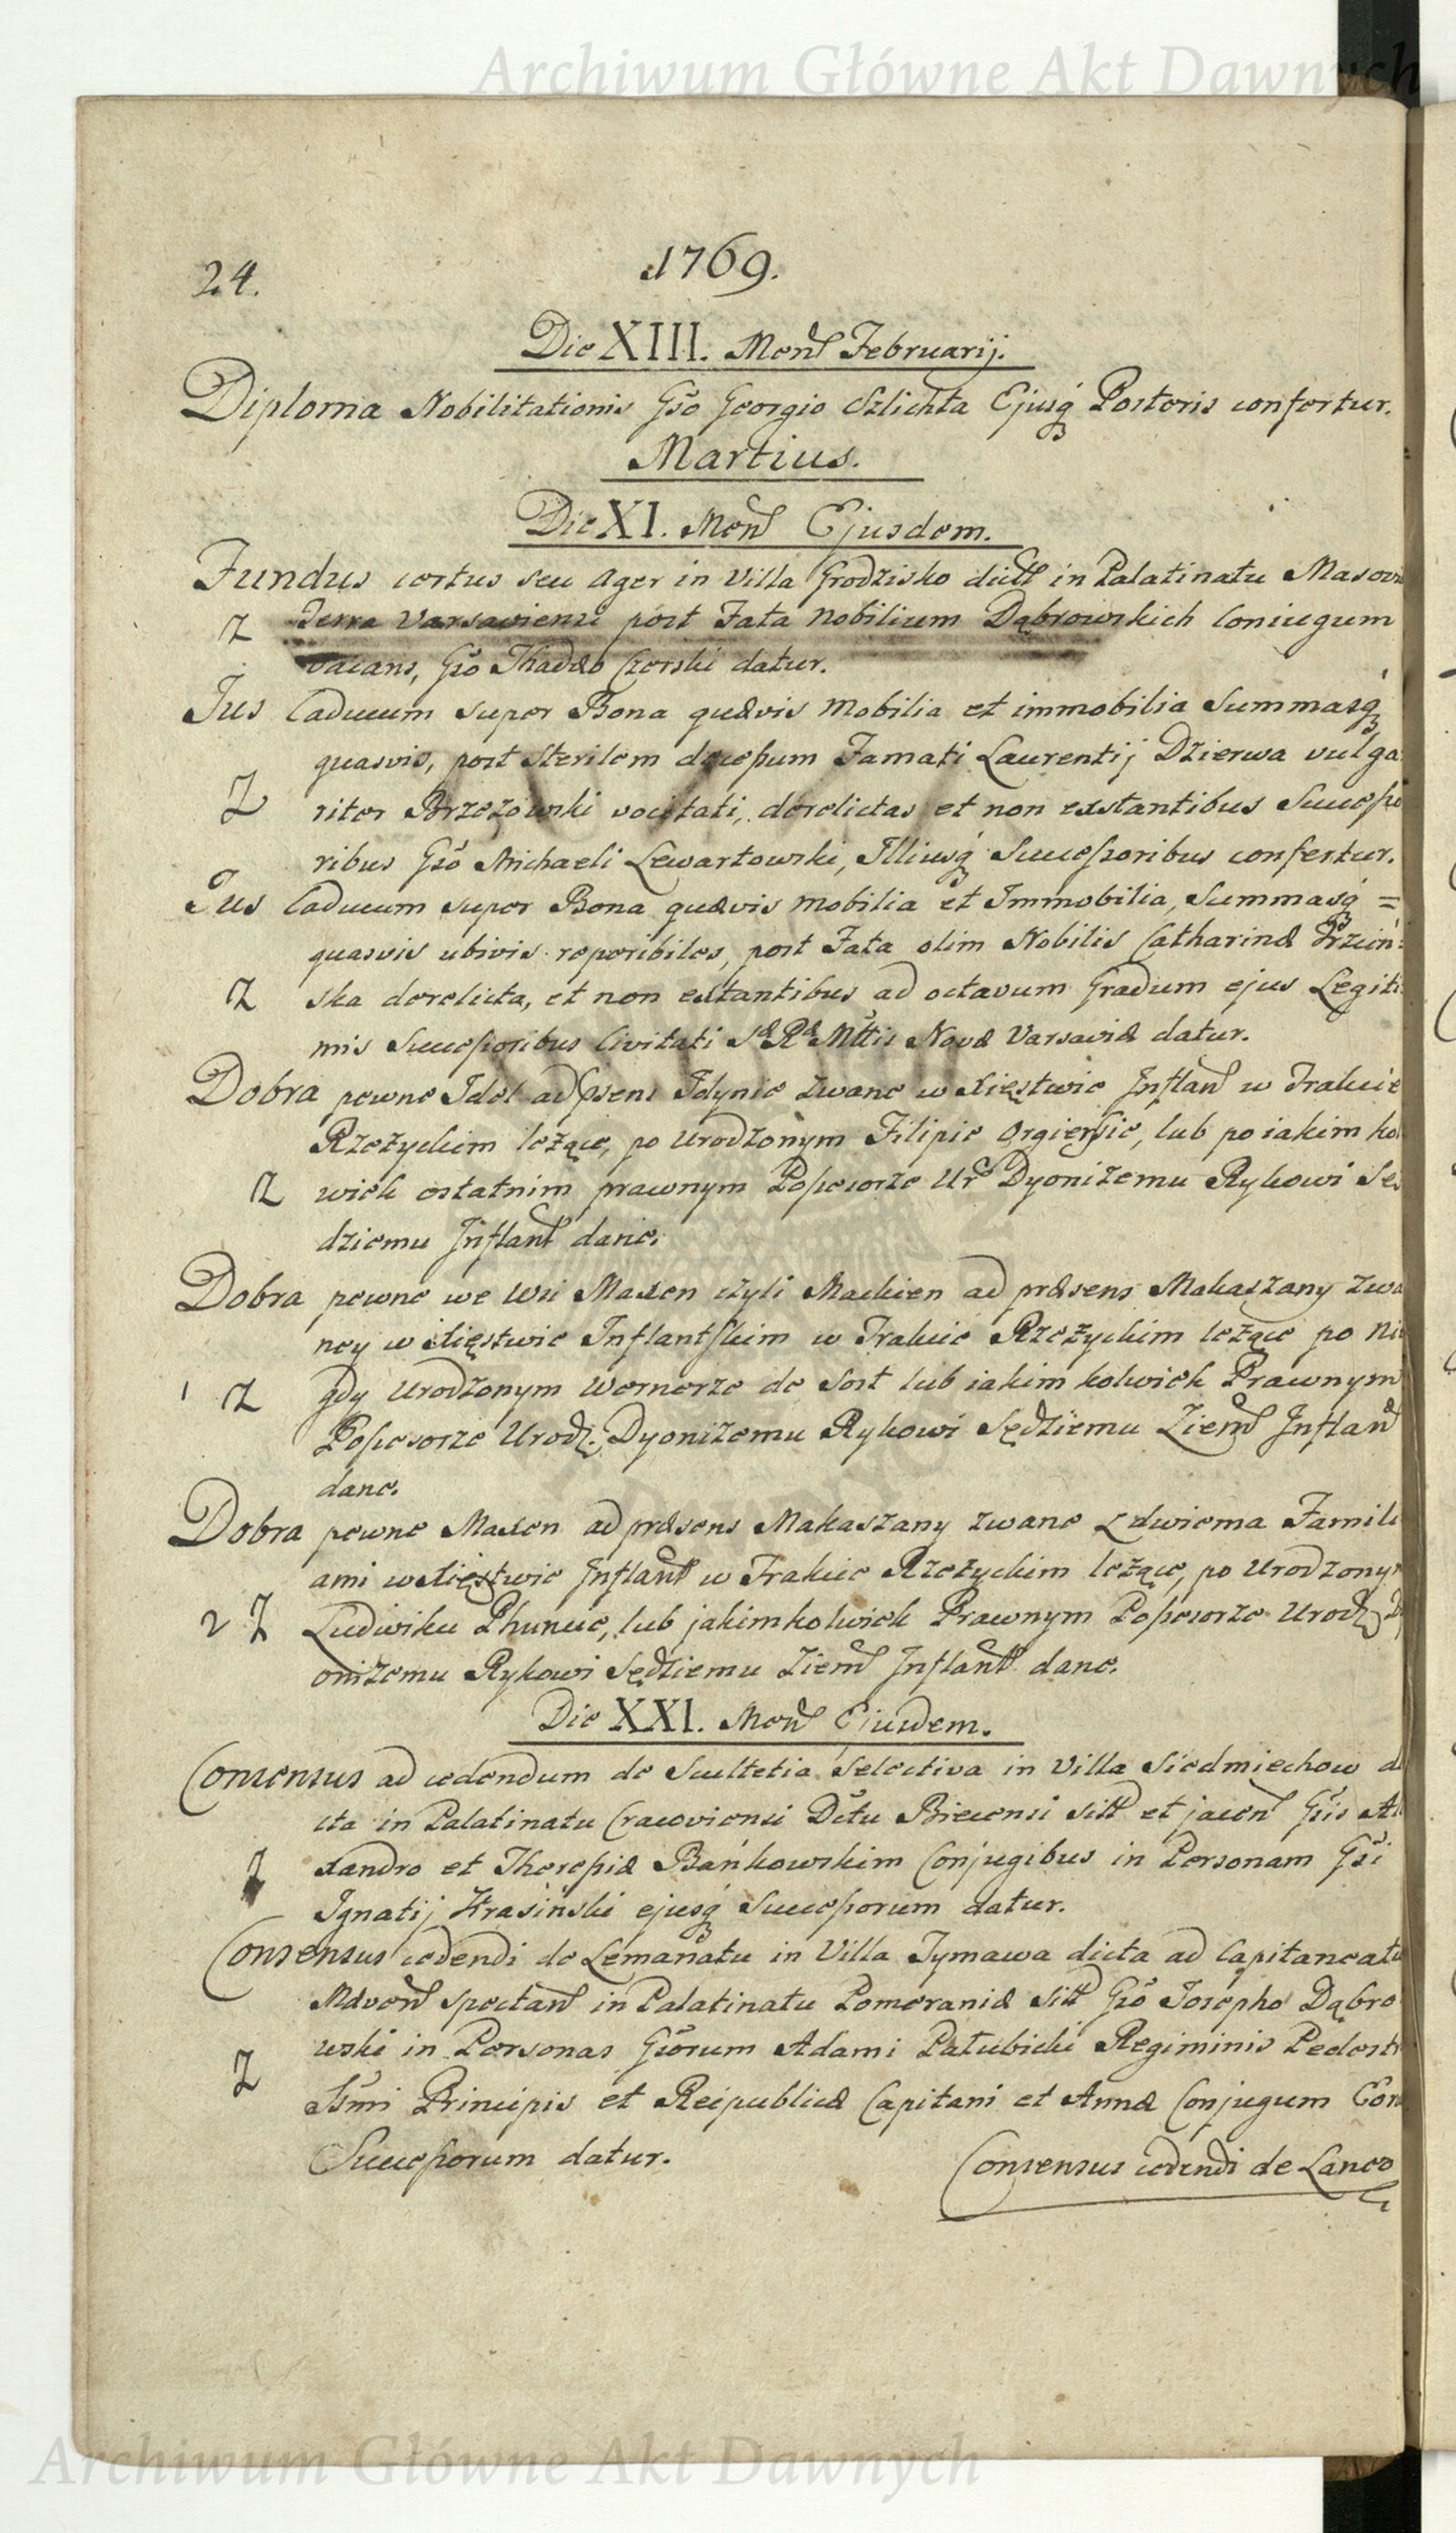 Archiwum Główne Akt Dawnych
24.
1769.
Die XIII. Mens Februarij.
Diploma Nobilitationis Gso Georgio Szlichta Ejusq Posteris confertur.
Martius.
Die XI. Mens Ejusdem.
Fundus certus seu Ager in Villa Grodzisko dict in Palatinatu Masovi
Z Terra Varsaviensi post Fata Nobilium Dąbrowskich Coniugum
vacans, Gso Thadæo Czerski datur.
Jus Caducum super Bona quævis Mobilia et immobilia Summasq
quasvis, post sterilem decessum Famati Laurentij Dzierwa vulga
Z riter Brzezowski vocitati, derelictas et non exstantibus Successo
ribus Gso Michaeli Lewartowski, Illiusq Successoribus confertur.
Jus Caducum super Bona quævis mobilia et Immobilia, Summasq =
quasvis ubivis reperibiles, post Fata olim Nobilis Catharinæ
Z ska derelicta, et non extantibus ad octavum Gradum ejus Legiti
mis Successoribus Civitati Sæ Ræ Mttis Novæ Varsaviæ datur.
Dobra pewne Idel ad psens Idynie zwane w Xięstwie Inflan w Trakcie
Rzeżyckim leżące, po Urodzonym Filipie lub po iakim kol
Z wiek ostatnim prawnym Possessorze Ur Dyonizemu Rykowi Sę
dziemu Inflant dane.
Dobra pewne we Wsi Maxen czyli Mackien ad præsens Makaszany zwa
ney w Xięstwie Inflantskim w Trakcie Rzeżyckim leżące po Nie
1 Z gdy Urodzonym Wernerze de Sost lub iakim kolwiek Prawnym
Possessorze Urodz. Dyonizemu Rykowi Sędziemu Ziem Inflan
dane.
Dobra pewne Maxen ad præsens Makaszany zwane z dwiema Famili
ami w Xięstwie Inflant w Trakcie Rzeżyckim leżące, po Urodzonym
2 Z Ludwiku lub jakimkolwiek Prawnym Possessorze Urodz Dy
onizemu Rykowi Sędziemu Ziem Inflant dane.
Die XXI. Mens Ejusdem.
Consensus ad cedendum de Scultetia Selectiva in Villa Siedmiechow di
cta in Palatinatu Cracoviensi Dctu Biecensi sitt et jacen Gsis Ale
Z xandro et Theressiæ Bańkowskim Conjugibus in Personam Gsi
Ignatij Krasiński ejusq Successorum datur.
Consensus cedendi de Lemanatu in Villa Tymawa dicta ad Capitaneatu
Mdven spectan in Palatinatu Pomeraniæ sitt Gso Josepho Dąbro
wski in Personas Gsorum Adami Pałubicki Regiminis Pedestr
Z Ssmi Principis et Reipublicæ Capitani et Annæ Conjugum Eor
Successorum datur.
Consensus cedendi de Laneo
Archiwum Główne Akt Dawnych